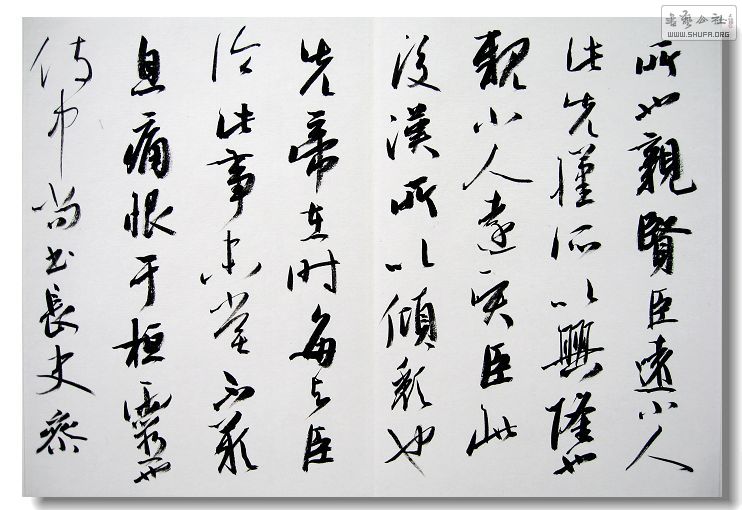 所也親賢臣遠小人
此先漢所以興隆也
親小人遠賢臣此
後漢所以傾頹也
先帝在时每与臣
論此事未嘗不歎
息痛恨于桓靈也
侍中尚書長史參
書藝公社
WWW.SHUFA.ORG